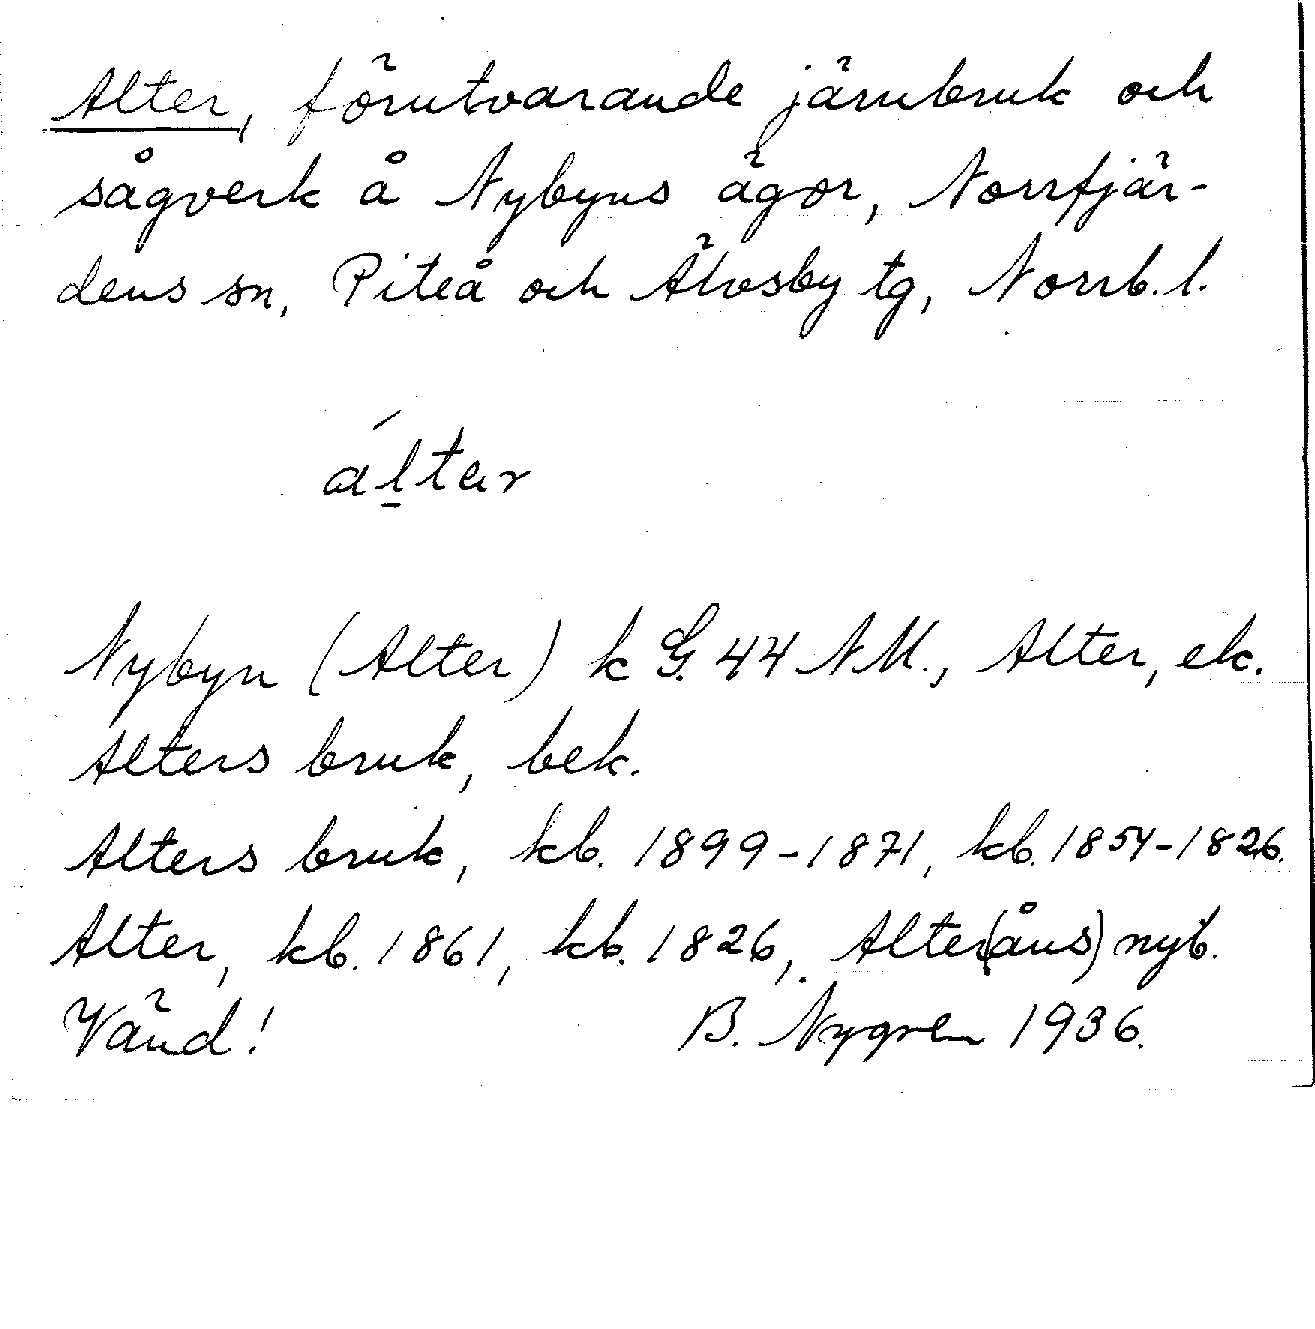 Alter, förutvarande järnbruk och
sågverk å Nybyns ägor, Norrfjär-
dens sn, Piteå och Älvsby tg, Norrb. l.
áltar
Nybyn (Alter) k G. 44 NM., Alter, ek.
Alters bruk, bek.
Alters bruk, kb. 1899-1871, kb. 1854-1826.
Alter, kb. 1861, kb. 1826, Alter(åns) nyb.
Vänd! B. Nygren 1936.